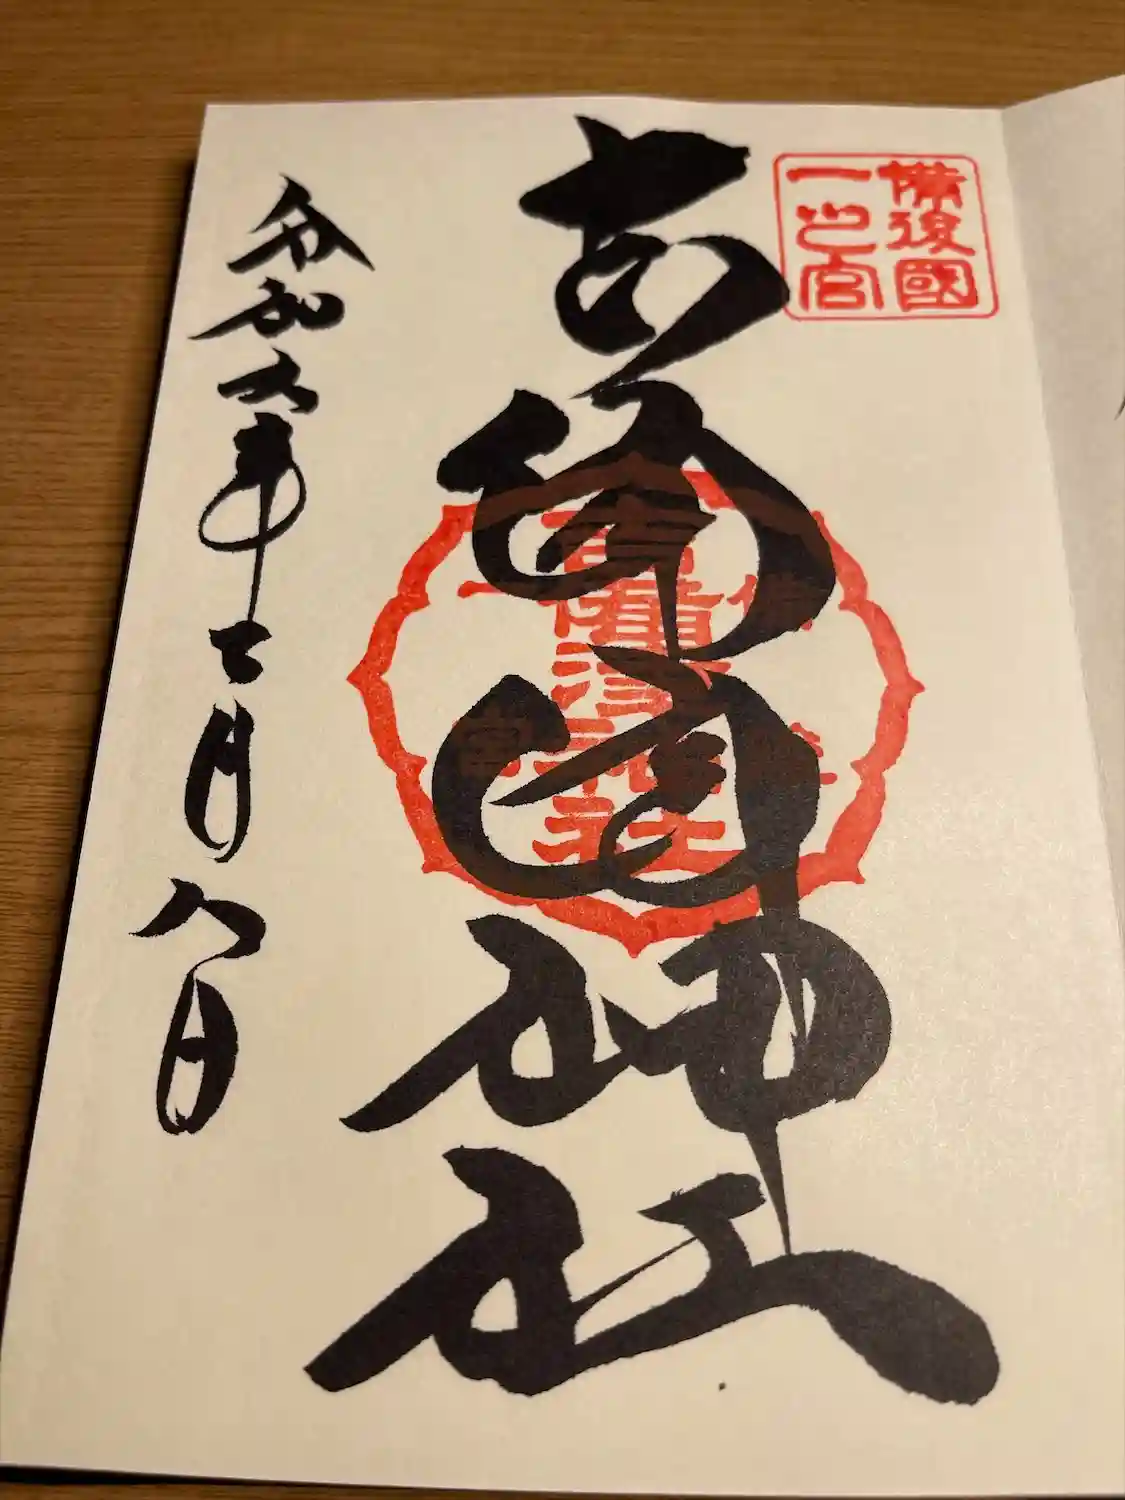 備後國
一之宮
吉備津神社
備後
一宮
吉備津神社
令和六年二月八日